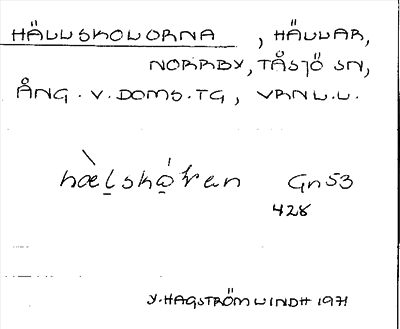 HÄLLSKOLORNA , HÄLLAR,
NORRBY, TÅSJÖ SN,
ÅNG. V. DOMS. TG, VRNL.L.
Gn 53
428
Y. HAGSTRÖM LINDH 1971